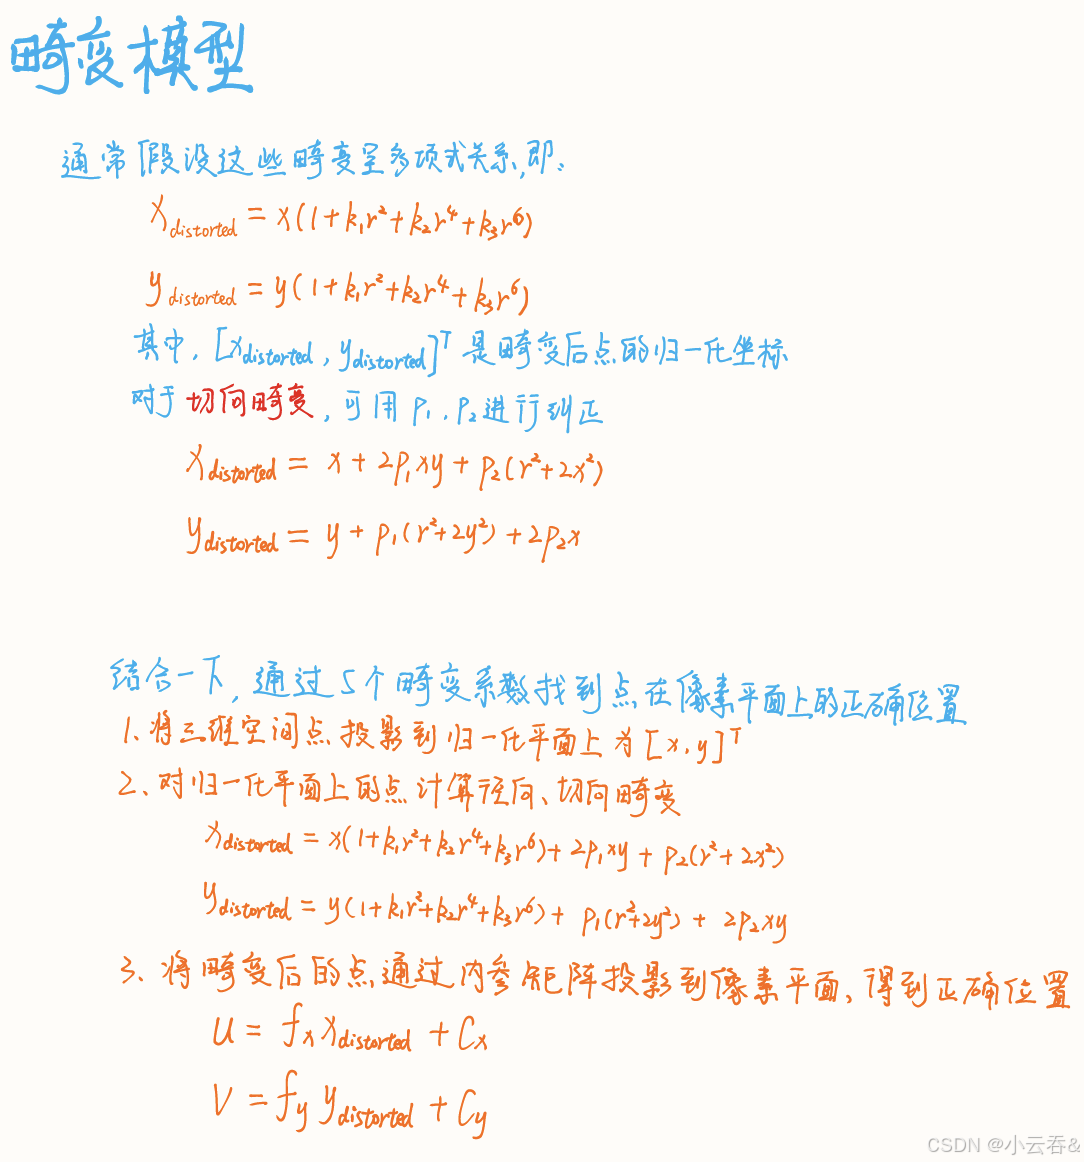 畸变模型
通常假设这些畸变呈多项式关系,即:
x_distorted = x(1+k₁r²+k₂r⁴+k₃r⁶)
y_distorted = y(1+k₁r²+k₂r⁴+k₃r⁶)
其中,[x_distorted, y_distorted]ᵀ是畸变后点的归一化坐标
对于切向畸变,可用p₁,p₂进行纠正
x_distorted = x+2p₁xy+p₂(r²+2x²)
y_distorted = y+p₁(r²+2y²)+2p₂x
结合一下,通过5个畸变系数找到点在像素平面上的正确位置
1、将三维空间点投影到归一化平面上为[x,y]ᵀ
2、对归一化平面上的点计算径向、切向畸变
x_distorted = x(1+k₁r²+k₂r⁴+k₃r⁶)+2p₁xy+p₂(r²+2x²)
y_distorted = y(1+k₁r²+k₂r⁴+k₃r⁶)+p₁(r²+2y²)+2p₂xy
3、将畸变后的点通过内参矩阵投影到像素平面、得到正确位置
u = fₓx_distorted + cₓ
v = f_y y_distorted + c_y
CSDN @小云吞&